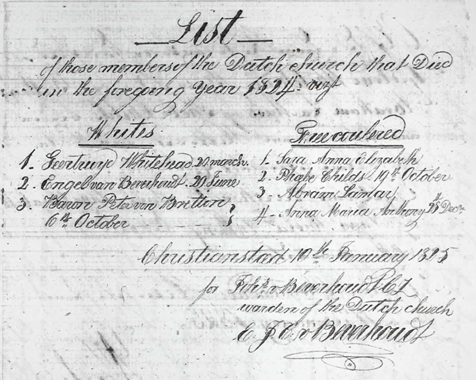 List
of those members of the Dutch church that Died
in the foregoing Year 1824. vizt
Whites
1. Geertruyd Whitehead 20 march
2. Engel van Beverhoudt. 20 June
3. Baron Peter van Bretton
6th October
Freecoulered
1. Sara Anna Elizabeth
2. Phebe Childs 19th October
3. Abram Lamar
4. Anna Maria Anthony 28 Decr
Christiansted 10th January 1825
for
warden of the Dutch church
E J C v Beverhoudt